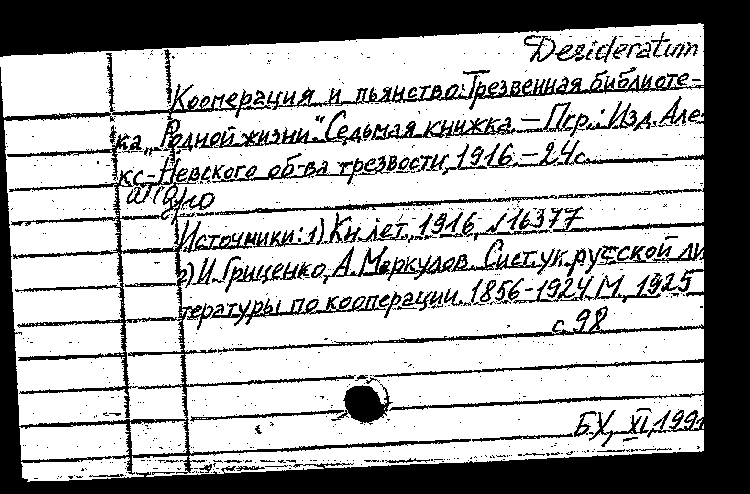 Desideratum
Кооперация и пьянство: Трезвенная библиоте-
ка „Родной жизни". Седьмая книжка. — Пгр.: Изд. Але-
кс-Невского об-ва трезвости, 1916. — 24с.
Источники: 1) Кн. лет., 1916, №16377
2) И. Гриценко, А. Меркулов. Сист. ук. русской ли
тературы по кооперации. 1856-1924 М., 1925
с. 98
БХ, XI, 1991